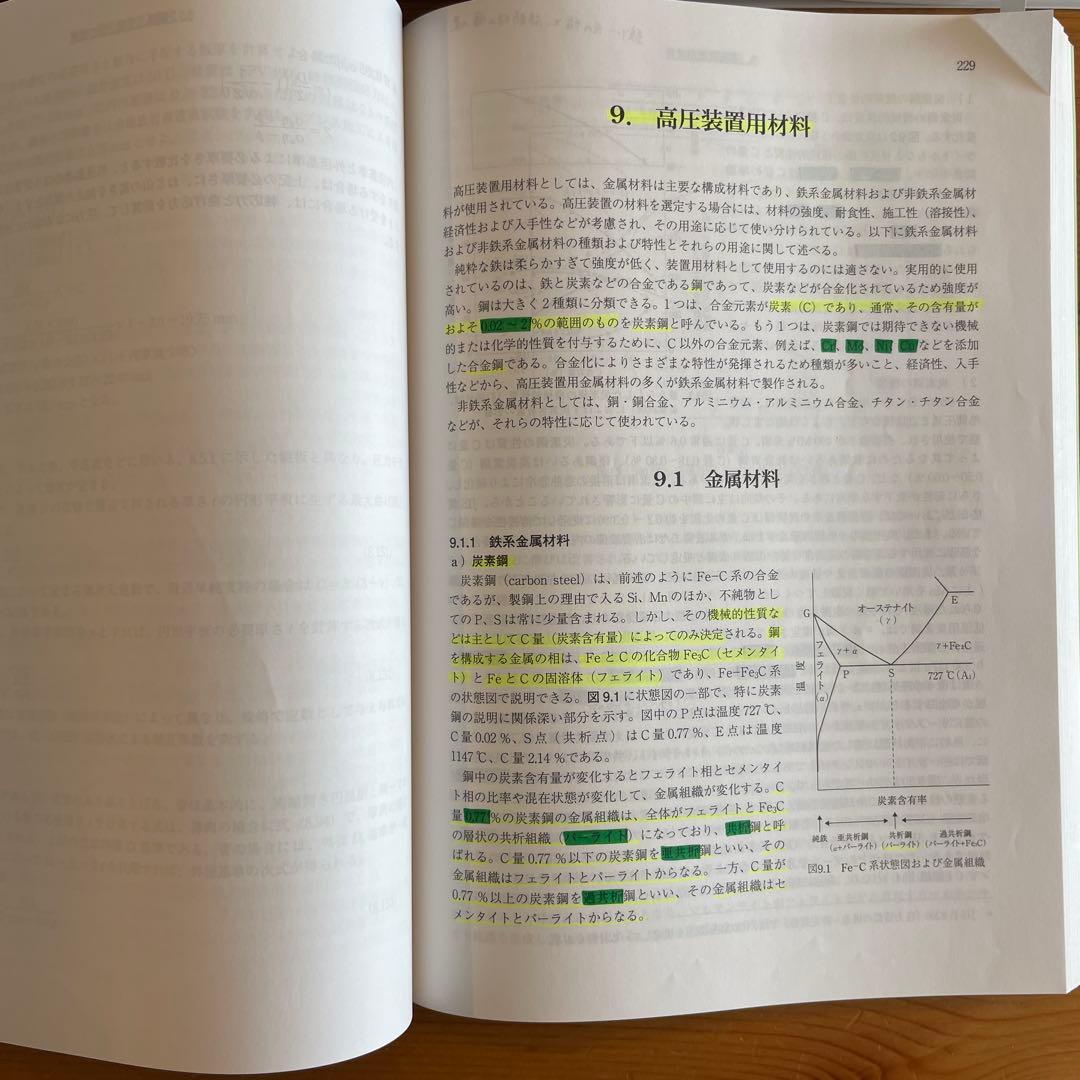 229
9. 高圧装置用材料
高圧装置用材料としては、金属材料は主要な構成材料であり、鉄系金属材料および非鉄系金属材
料が使用されている。高圧装置の材料を選定する場合には、材料の強度、耐食性、施工性（溶接性）、
経済性および入手性などが考慮され、その用途に応じて使い分けられている。以下に鉄系金属材料
および非鉄系金属材料の種類および特性とそれらの用途に関して述べる。
純粋な鉄は柔らかすぎて強度が低く、装置用材料として使用するのには適さない。実用的に使用
されているのは、鉄と炭素などの合金である鋼であって、炭素などが合金化されているため強度が
高い。鋼は大きく2種類に分類できる。1つは、合金元素が炭素（C）であり、通常、その含有量が
およそ0.02～2%の範囲のものを炭素鋼と呼んでいる。もう1つは、炭素鋼では期待できない機械
的または化学的性質を付与するために、C以外の合金元素、例えば、Cr、Mo、Ni、Cuなどを添加
した合金鋼である。合金化によりさまざまな特性が発揮されるため種類が多いこと、経済性、入手
性などから、高圧装置用金属材料の多くが鉄系金属材料で製作される。
非鉄系金属材料としては、銅・銅合金、アルミニウム・アルミニウム合金、チタン・チタン合金
などが、それらの特性に応じて使われている。
9.1 金属材料
9.1.1 鉄系金属材料
a）炭素鋼
炭素鋼（carbon steel）は、前述のようにFe-C系の合金
であるが、製鋼上の理由で入るSi、Mnのほか、不純物とし
てのP、Sは常に少量含まれる。しかし、その機械的性質な
どは主としてC量（炭素含有量）によってのみ決定される。鋼
を構成する金属の相は、FeとCの化合物Fe₃C（セメンタイ
ト）とFeとCの固溶体（フェライト）であり、Fe-Fe₃C系
の状態図で説明できる。図9.1に状態図の一部で、特に炭素
鋼の説明に関係深い部分を示す。図中のP点は温度727℃、
C量0.02%、S点（共析点）はC量0.77%、E点は温度
1147℃、C量2.14%である。
鋼中の炭素含有量が変化するとフェライト相とセメンタイ
ト相の比率や混在状態が変化して、金属組織が変化する。C
量0.77%の炭素鋼の金属組織は、全体がフェライトとFe₃C
の層状の共析組織（パーライト）になっており、共析鋼と呼
ばれる。C量0.77%以下の炭素鋼を亜共析鋼といい、その
金属組織はフェライトとパーライトからなる。一方、C量が
0.77%以上の炭素鋼を過共析鋼といい、その金属組織はセ
メンタイトとパーライトからなる。
G
E
オーステナイト
（γ）
γ+α
γ+Fe₃C
フェライト（α）
P
S
727℃（A₁）
温度
炭素含有率
純鉄 亜共析鋼 共析鋼 過共析鋼
（α+パーライト）（パーライト）（パーライト+Fe₃C）
図9.1 Fe-C系状態図および金属組織